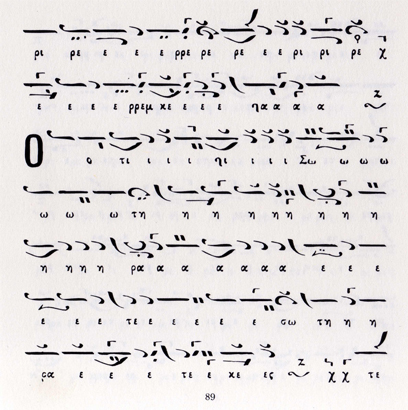 ρι ρε ε ε ε ρρε ρε ρε ε ε ρι ρι ρε χ
ε ε ε ε ρρεμ κε ε ε ε ηα α α α
Ο ο τι ι ι ι ηι ι ι ι Σω ω ω ω
ω ω ω τη η η η η η η η η
η η η η ρα α α α α α α α ε ε
ε ε ε τε ε ε ε ε ε σω τη η η
σα ε ε ε τε ε κε ες χ χ τε
89